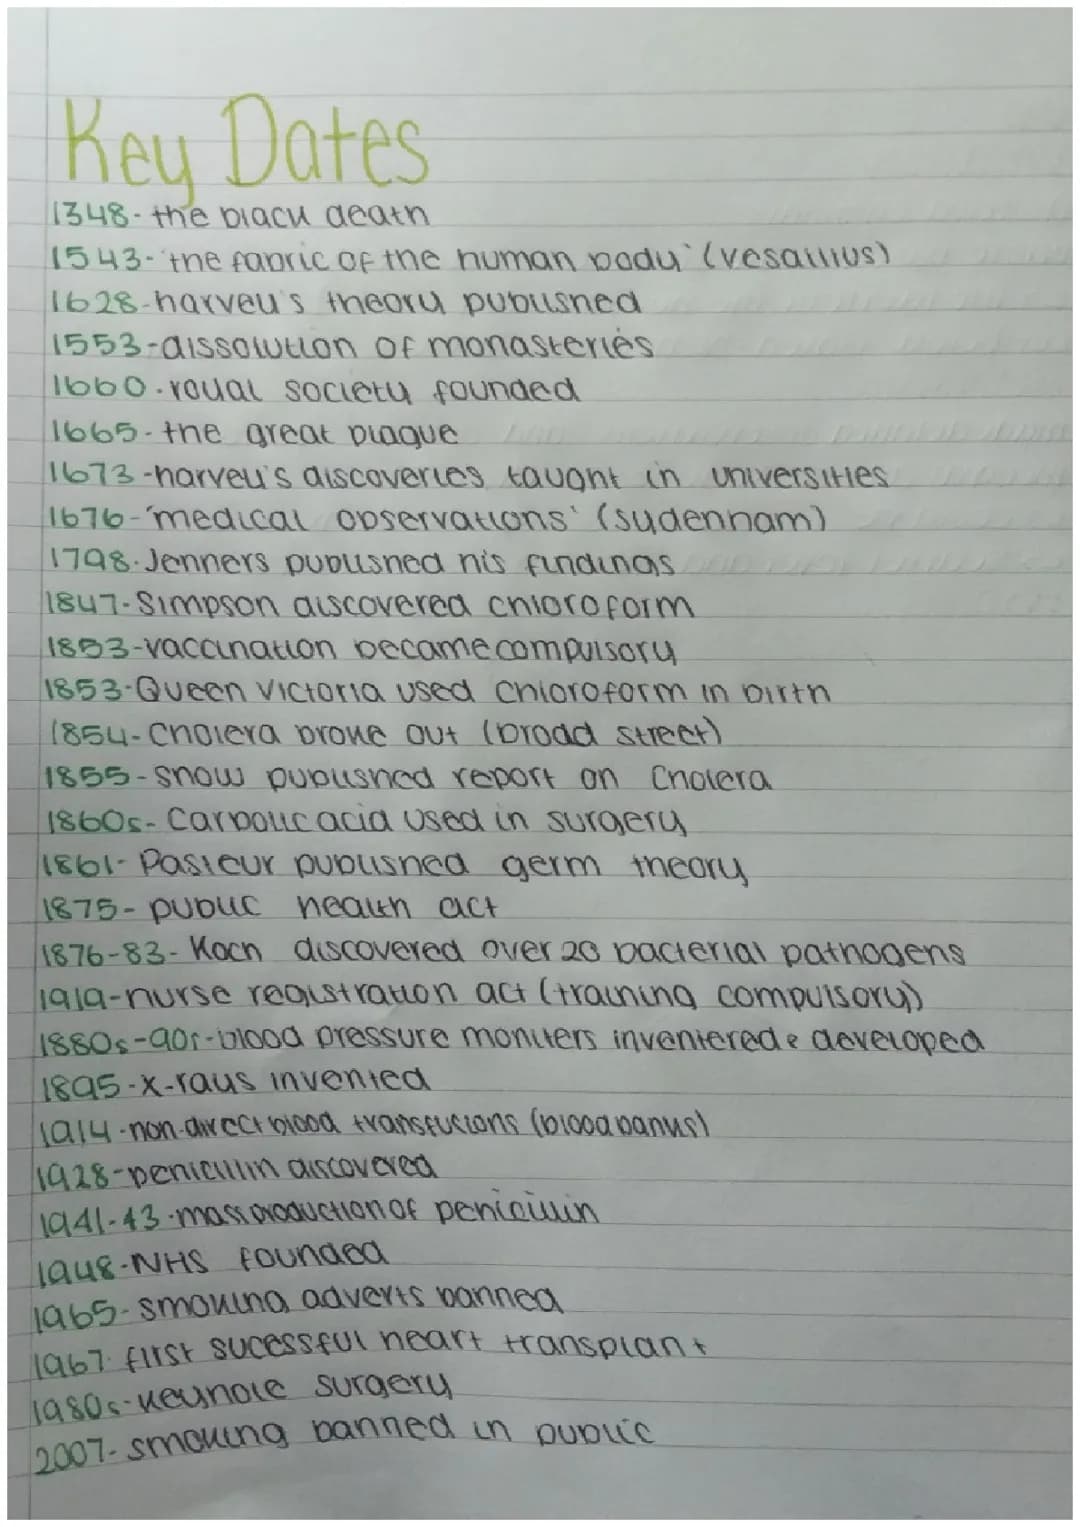 Key Dates
1348- the black death
1543- 'the fabric of the human body' (vesallius)
1628-harvey's theory published
1553-dissolution of monasteries
1660-royal society founded
1665- the great plague
1673-harvey's discoveries taught in universities
1676-'medical observations' (sydenham)
1798-Jenners published his findings
1847-Simpson discovered chloroform
1853-vaccination became compulsory
1853-Queen Victoria used chloroform in birth
1854- Cholera broke out (broad street)
1855-snow published report on Cholera
1860s- Carbolic acid used in surgery
1861- Pasteur published germ theory
1875- public health act
1876-83- Koch discovered over 20 bacterial pathogens
1919-nurse registration act (training compulsory)
1880s-90s-blood pressure moniters inventered & developed
1895-x-rays invented
1914-non-direct blood transfusions (blood banks)
1928-penicillin discovered
1941-43-mass production of penicillin
1948-NHS founded
1965-smoking adverts banned
1967- first sucessful heart transplant
1980s-keyhole surgery
2007- smoking banned in public